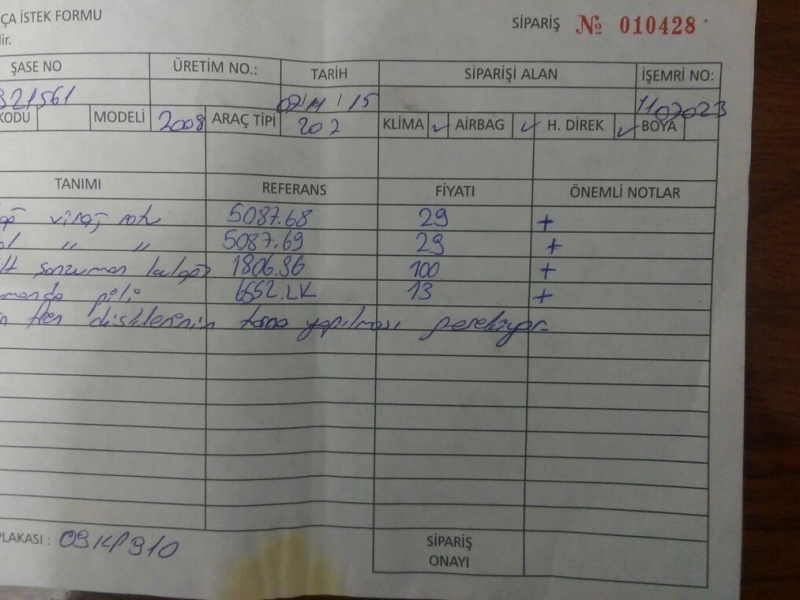 ÇA İSTEK FORMU
SİPARİŞ № 010428
dir.
ŞASE NO ÜRETİM NO.: TARİH SİPARİŞİ ALAN İŞEMRİ NO:
321561 07/11/15 1107023
KODU MODELİ 2008 ARAÇ TİPİ 207 KLİMA ✓ AIRBAG ✓ H. DİREK ✓ BOYA
TANIMI REFERANS FİYATI ÖNEMLİ NOTLAR
viraj rotu 5087.68 29 +
" " 5087.69 29 +
şanzuman kulağı 1806.96 100 +
pili 6552.LK 13 +
fren disklerinin torna yapılması gerekiyor
PLAKASI: 09KP910
SİPARİŞ
ONAYI